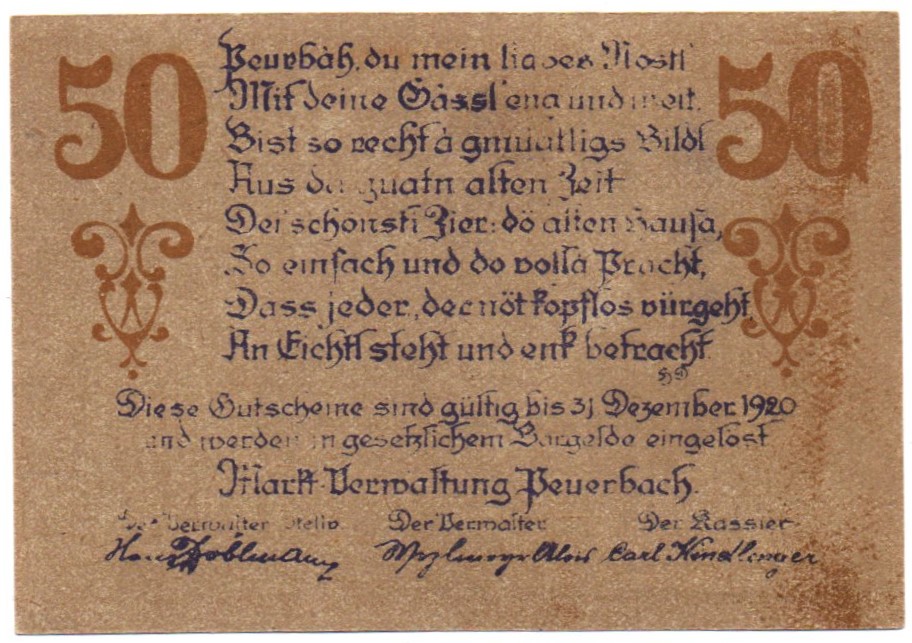 50
50
Peurbàh, du mein liabes Nestl
Mit deine Gàssl eng und weit,
Bist so recht à gmüatligs Bildl
Aus da guatn alten Zeit
Dei schönsti Zier: dö alten Hausà,
So einfach und do vollà Pracht,
Dass jeder, der nöt kopflos vürgeht
An Eichtl steht und enk betracht
HD
Diese Gutscheine sind gültig bis 31 Dezember 1920
und werden in gesetzlichem Bargelde eingelöst
Markt-Verwaltung Peuerbach.
Der Verwalter Stellv. Der Verwalter Der Kassier
Alois Carl